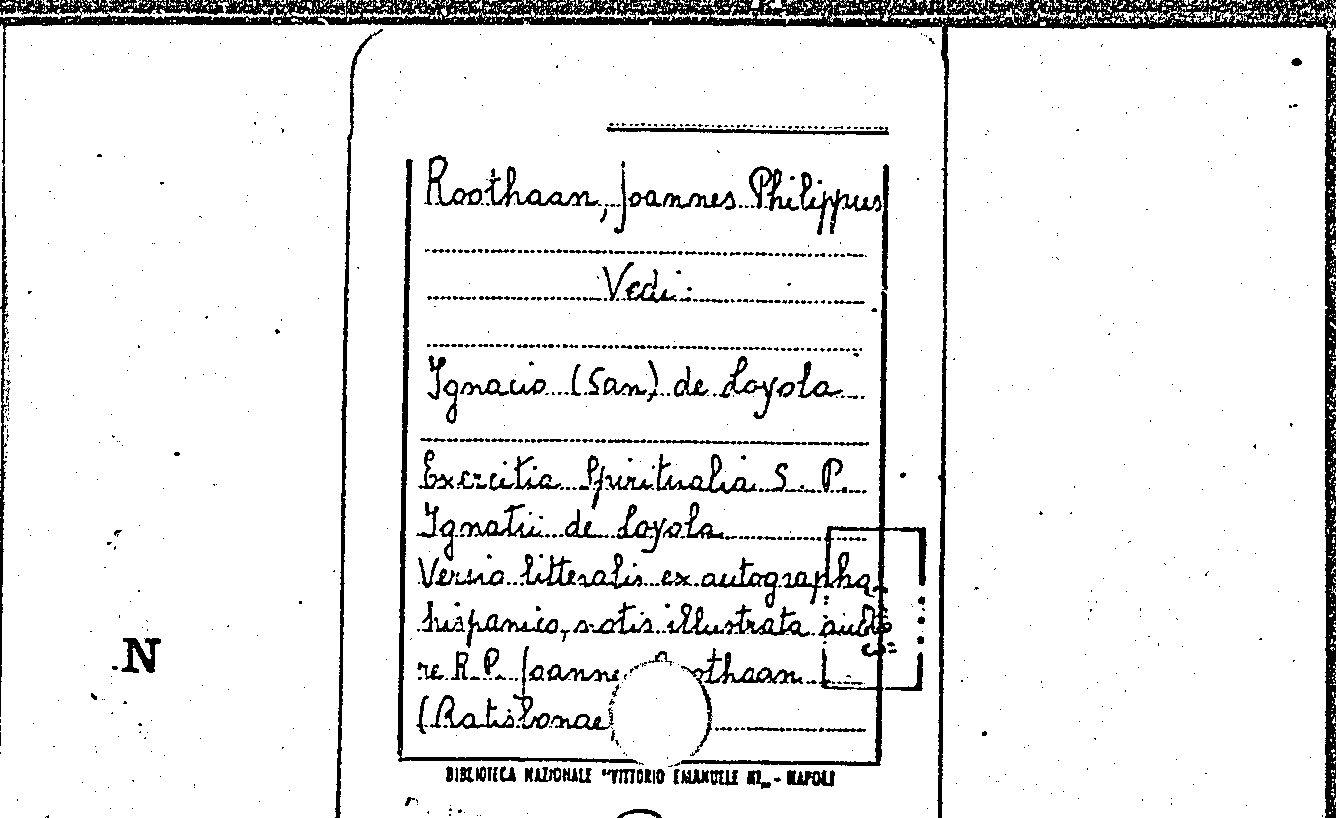 Roothaan, Joannes Philippus
Vedi:
Ignacio (San) de Loyola
Exercitia Spiritualia S. P.
Ignatii de Loyola
Versio litteralis ex autographo
hispanico, notis illustrata aucto
re R. P. Joanne Roothaan
(Ratisbonae
N
BIBLIOTECA NAZIONALE "VITTORIO EMANUELE III„ - NAPOLI